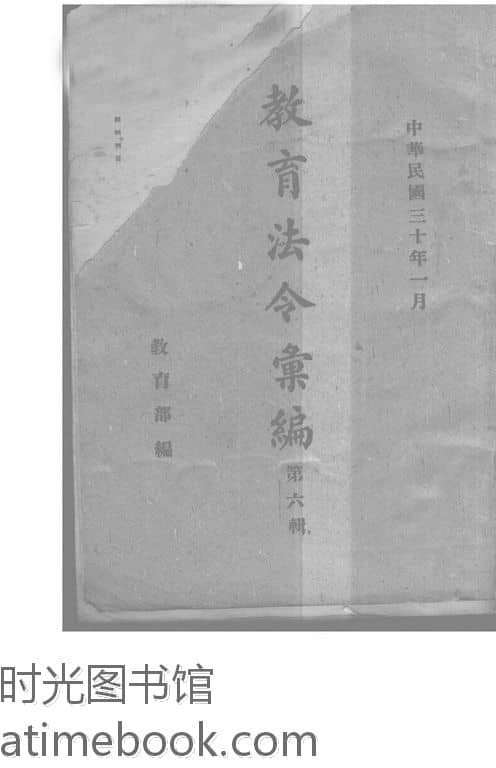 中華民國三十年一月
教育法令彙編
第六輯
教育部編
时光图书馆
atimebook.com